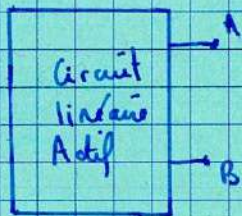 Circuit
linéaire
Actif
A
B